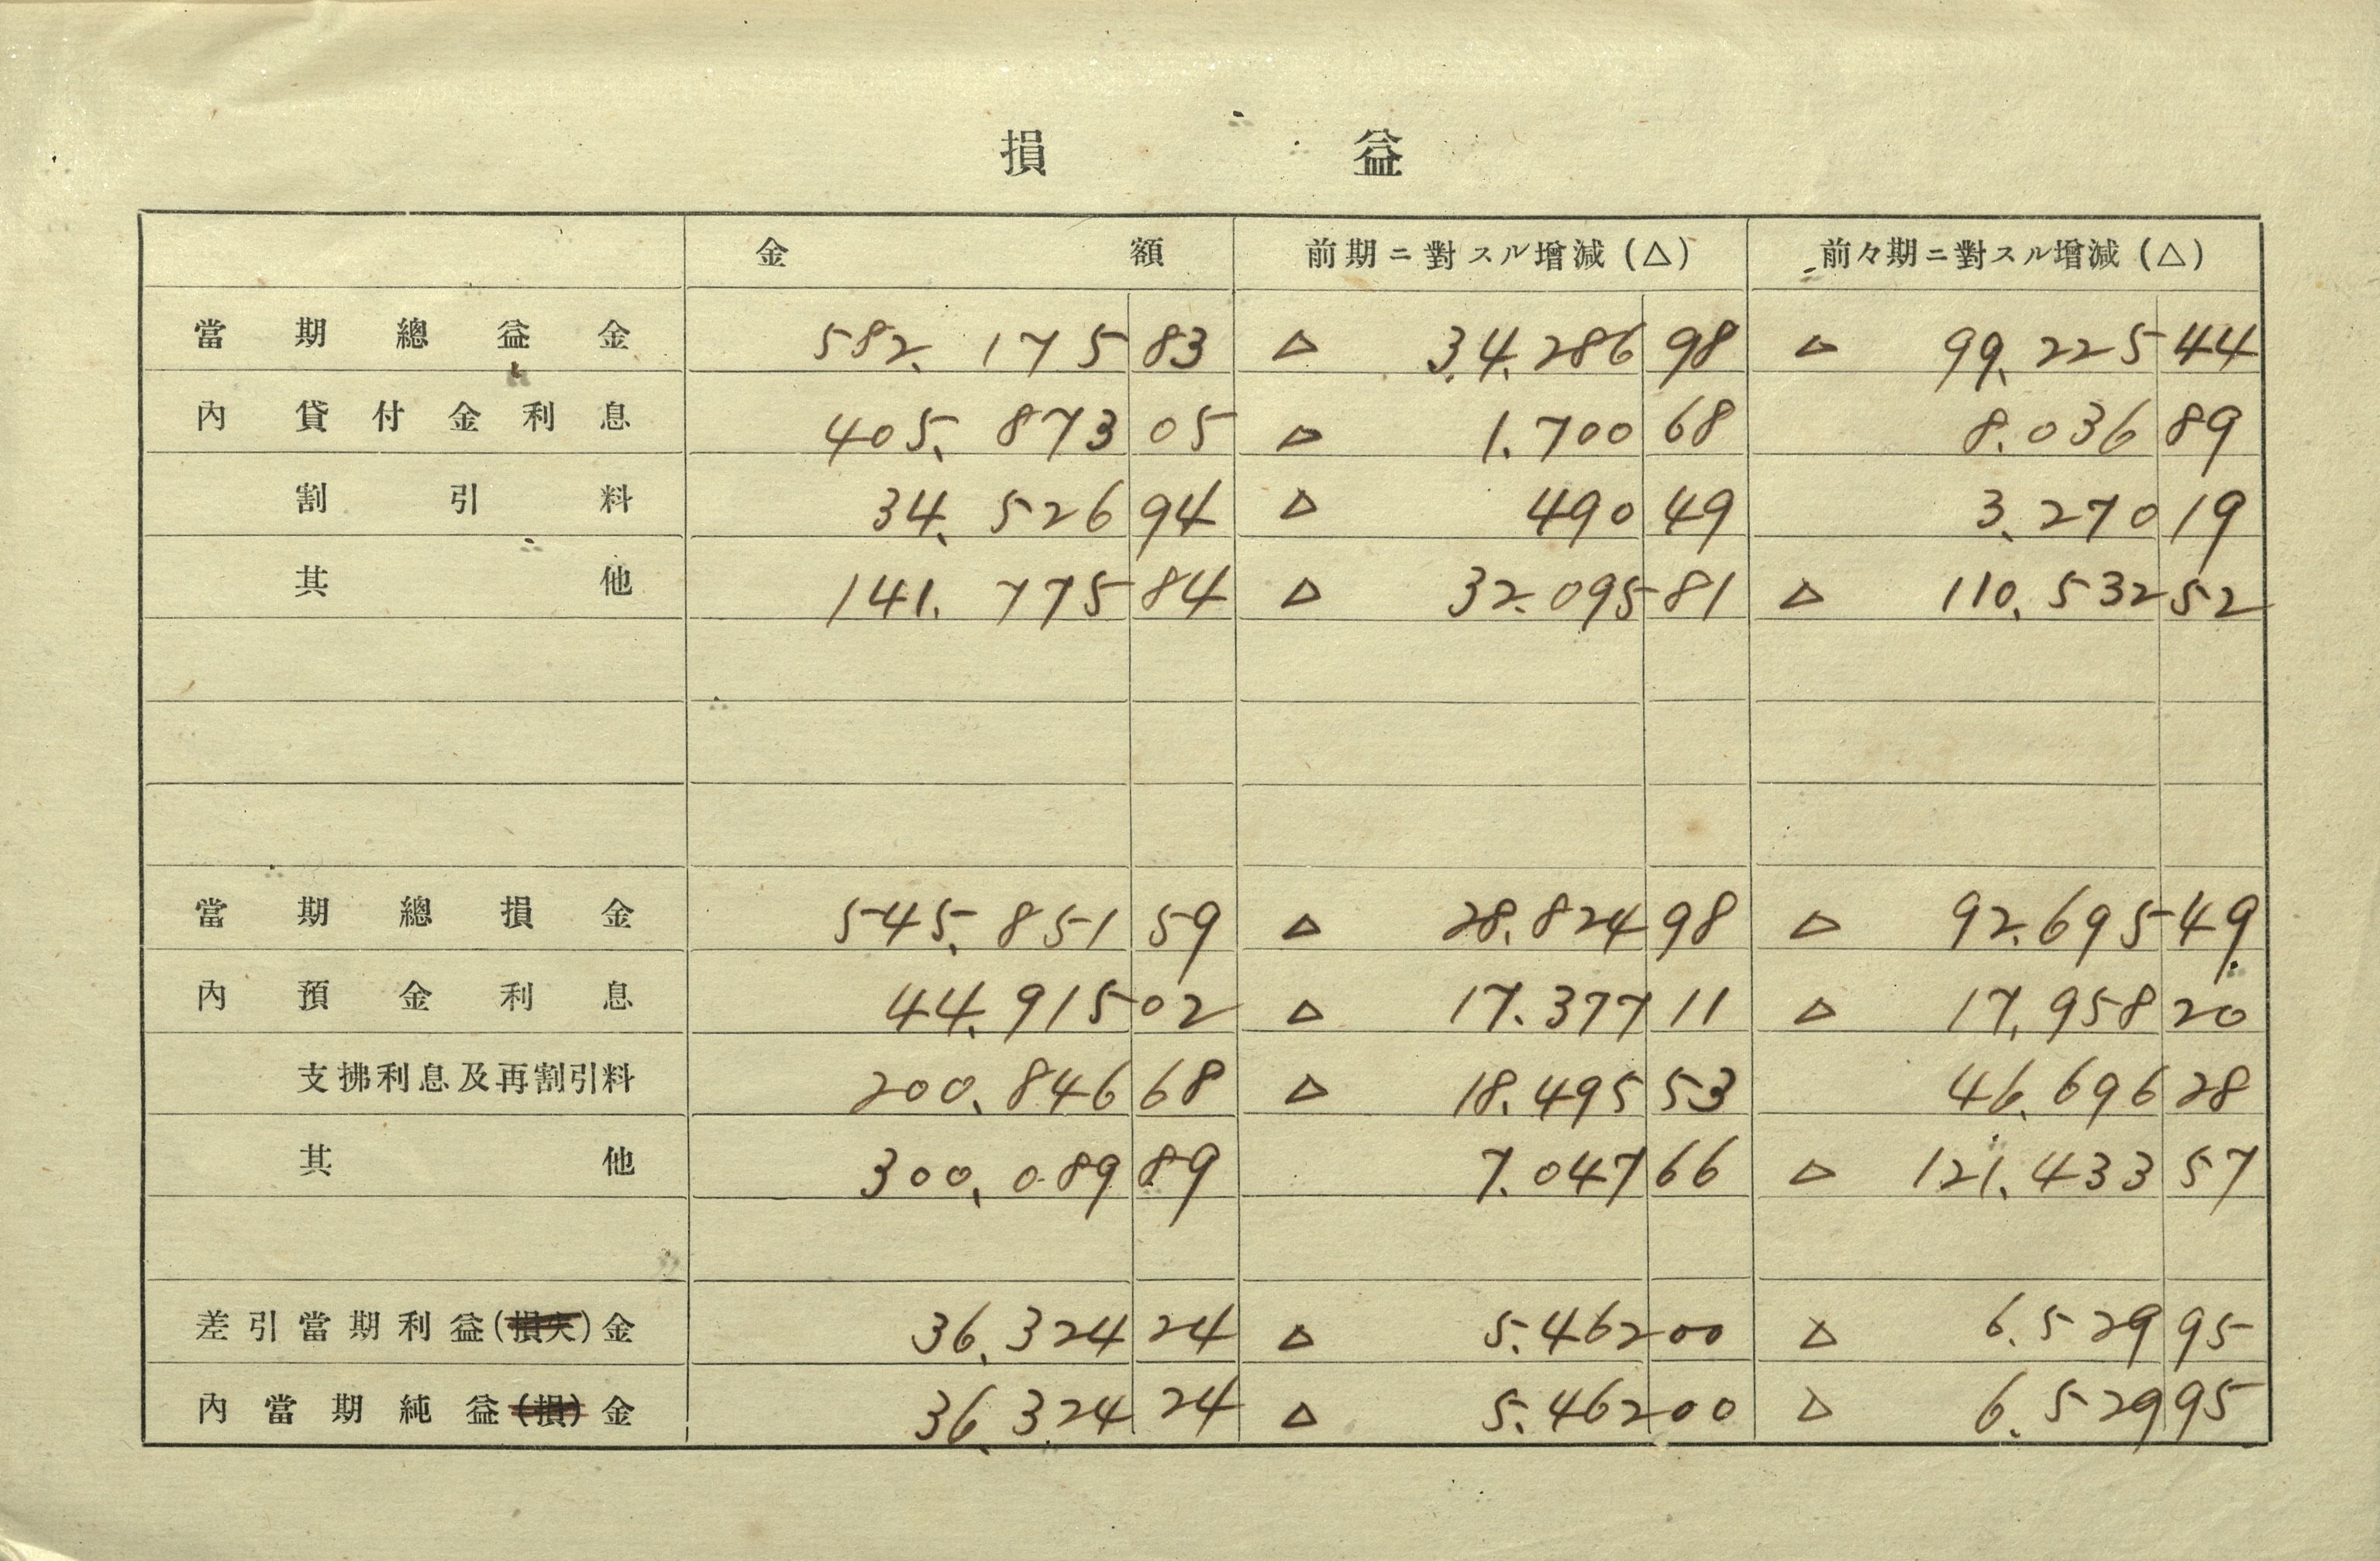 損益
金額 前期ニ對スル增減(△) 前々期ニ對スル增減(△)
當期總益金 582.175 83 △ 34.286 98 △ 99.225 44
內 貸付金利息 405.873 05 △ 1.700 68 8.036 89
割引料 34.526 94 △ 490 49 3.270 19
其他 141.775 84 △ 32.095 81 △ 110.532 52
當期總損金 545.851 59 △ 28.824 98 △ 92.695 49
內 預金利息 44.915 02 △ 17.377 11 △ 17.958 20
支拂利息及再割引料 200.846 68 △ 18.495 53 46.696 28
其他 300.089 89 7.047 66 △ 121.433 57
差引當期利益(損失)金 36.324 24 △ 5.462 00 △ 6.529 95
內當期純益(損)金 36.324 24 △ 5.462 00 △ 6.529 95